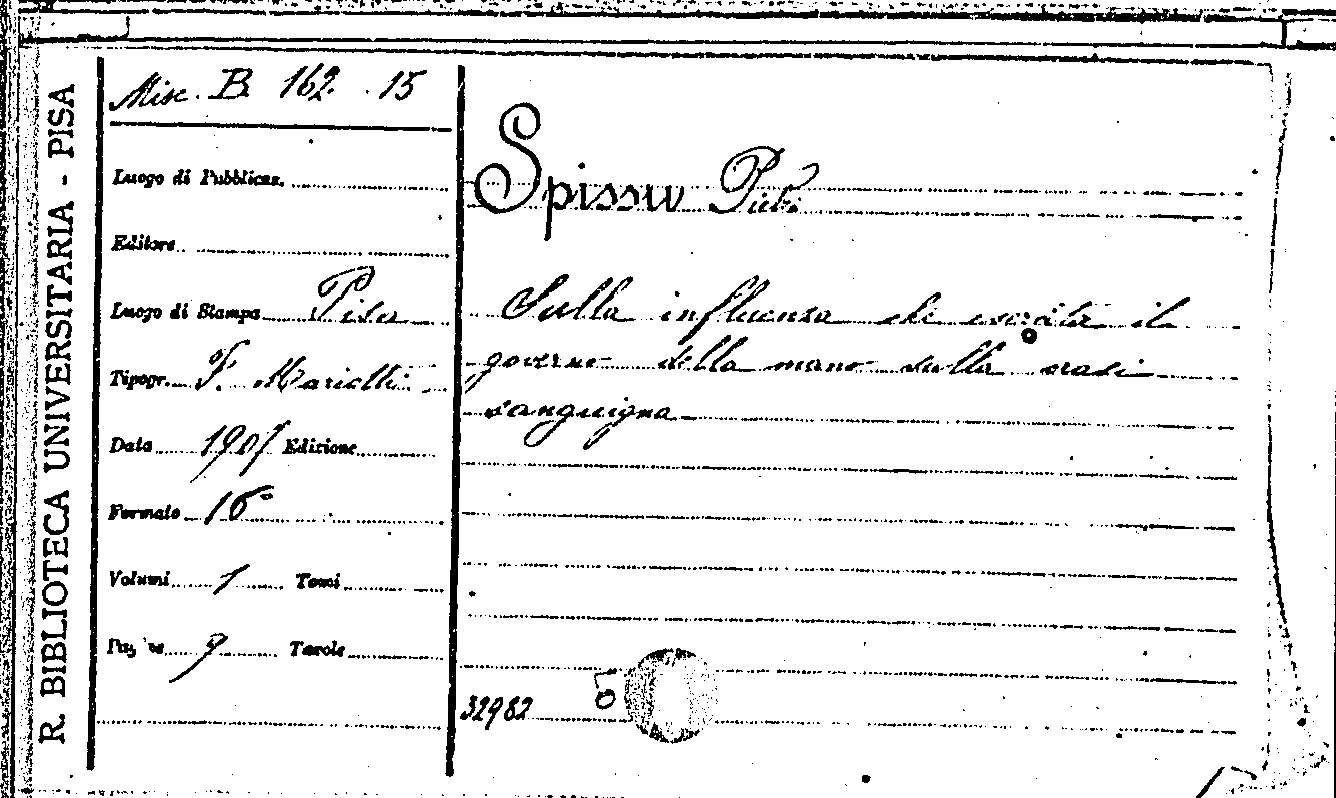 R. BIBLIOTECA UNIVERSITARIA - PISA
Misc. B. 162. 15
Luogo di Pubblicaz.
Editore
Luogo di Stampa Pisa
Tipogr. F. Mariotti
Data 1907 Edizione
Formato 16°
Volumi 1 Tomi
Pagine 9 Tavole
Spissu
Sulla influenza che esercita il
governo della mano sulla crasi
sanguigna
32982